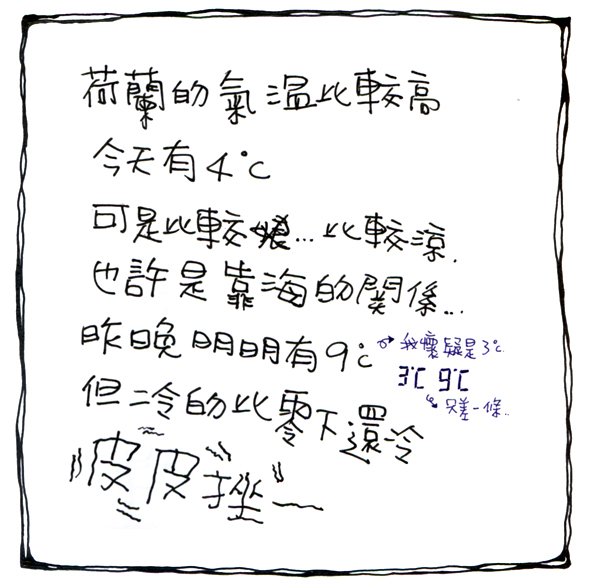 荷蘭的氣温比較高
今天有4°C
可是比較...比較涼.
也許是靠海的關係...
昨晚明明有9°C
我懷疑是3°C.
3°C 9°C
只差一條..
但冷的比零下還冷
皮皮挫~